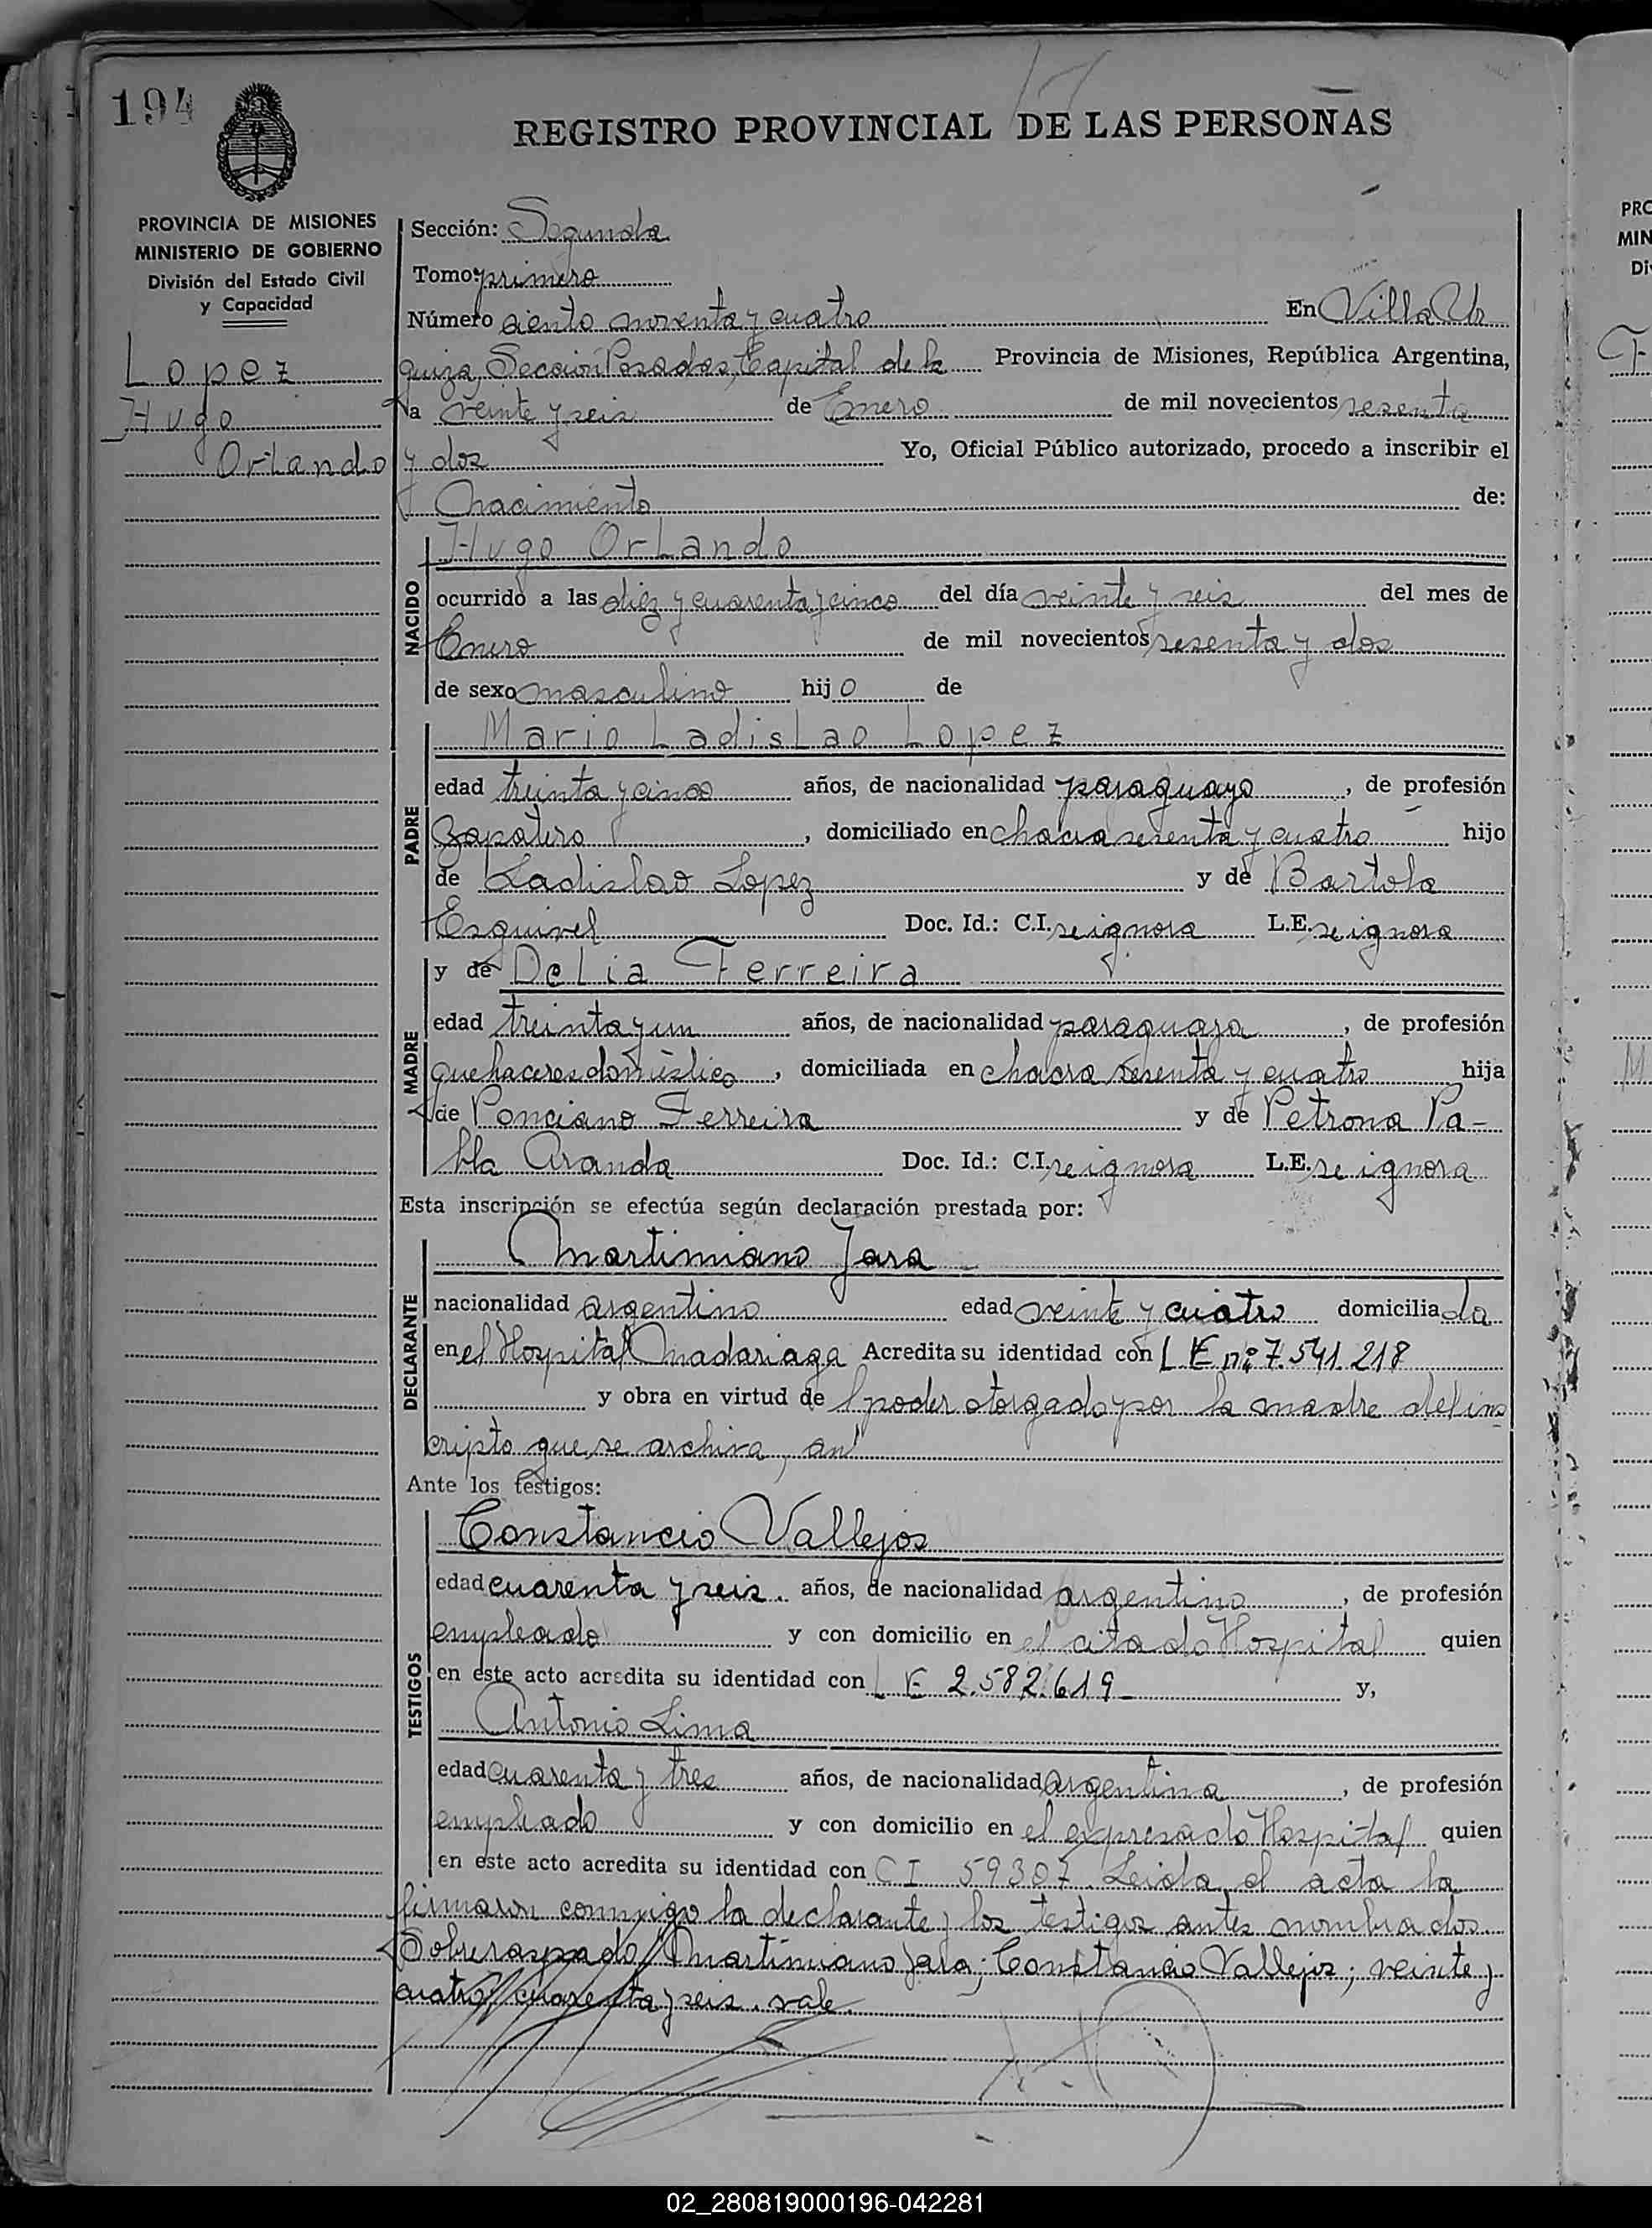 194
REGISTRO PROVINCIAL DE LAS PERSONAS
PROVINCIA DE MISIONES
MINISTERIO DE GOBIERNO
División del Estado Civil
y Capacidad
Lopez
Hugo
Orlando
Sección: Segunda
Tomo: primero
Número ciento noventa y cuatro En Villa Ur
quiza, Sección Posadas, Capital de la Provincia de Misiones, República Argentina,
a veinte y seis de Enero de mil novecientos sesenta
y dos Yo, Oficial Público autorizado, procedo a inscribir el
nacimiento de:
NACIDO
Hugo Orlando
ocurrido a las diez y cuarenta y cinco del día veinte y seis del mes de
Enero de mil novecientos sesenta y dos
de sexo masculino hijo de
PADRE
Mario Ladislao Lopez
edad treinta y cinco años, de nacionalidad paraguayo, de profesión
Zapatero, domiciliado en chacra sesenta y cuatro hijo
de Ladislao Lopez y de Bartola
Esquivel Doc. Id.: C.I. se ignora L.E. se ignora
MADRE
y de Delia Ferreira
edad treinta y un años, de nacionalidad paraguaya, de profesión
quehaceres doméstico, domiciliada en chacra sesenta y cuatro hija
de Ponciano Ferreira y de Petrona Pa-
bla Aranda Doc. Id.: C.I. se ignora L.E. se ignora
Esta inscripción se efectúa según declaración prestada por:
DECLARANTE
Martimiano Jara
nacionalidad argentino edad veinte y cuatro domiciliada
en el Hospital Madariaga Acredita su identidad con L E nº 7.541.218
y obra en virtud del poder otorgado por la madre del ins
cripto que se archiva,
Ante los testigos:
TESTIGOS
Constancio Vallejos
edad cuarenta y seis. años, de nacionalidad argentino, de profesión
empleado y con domicilio en el citado Hospital quien
en este acto acredita su identidad con L E 2.582.619 y,
Antonio Lima
edad cuarenta y tres años, de nacionalidad argentina, de profesión
empleado y con domicilio en el expresado Hospital quien
en este acto acredita su identidad con C I 59307. Leida el acta la
firmaron conmigo la declarante y los testigos antes nombrados.
Sobreraspado/ Martimiano Jara; Constancio Vallejos; veinte y
cuatro/ cuarenta y seis. vale.
02_280819000196-042281